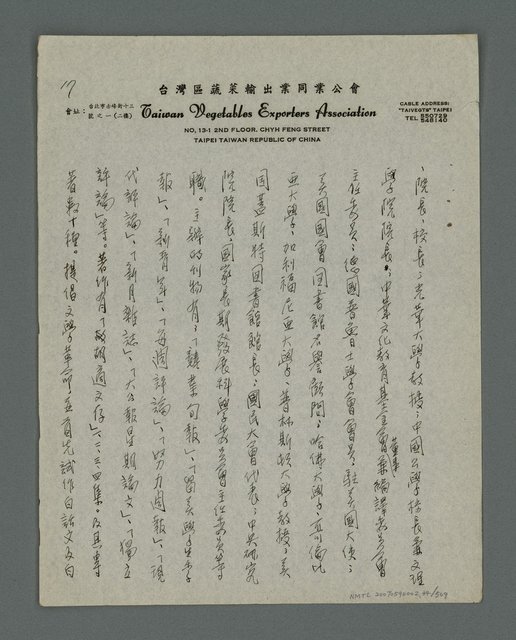 17
台灣區蔬菜輸出業同業公會
會址：台北市赤峰街十三號之一(二樓)
Taiwan Vegetables Exporters Association
CABLE ADDRESS:
"TAIVEGTS" TAIPEI
TEL 550729
548140
NO, 13-1 2ND FLOOR. CHYH FENG STREET
TAIPEI TAIWAN REPUBLIC OF CHINA
、院長、校長；光華大學教授；中國公學校長兼文理
學院院長；中華文化教育基金會董事兼編譯委員會
主任委員；德國普魯士學會會員；駐美國大使；
美國國會圖書館名譽顧問；哈佛大學、哥倫比
亞大學、加利福尼亞大學、普林斯頓大學教授；美
國蓋斯特圖書館館長；國民大會代表；中央研究
院院長；國家長期發展科學委員會主任委員等
職。主辦的刊物有：「競業旬報」、「留美學生季
報」、「新青年」、「每週評論」、「努力週報」、「現
代評論」、「新月雜誌」、「大公報星期論文」、「獨立
評論」等。著作有「胡適文存」一、二、三、四集。及其專
著數十種。提倡文學革命，並首先試作白話文及白
NMTL 20070590002